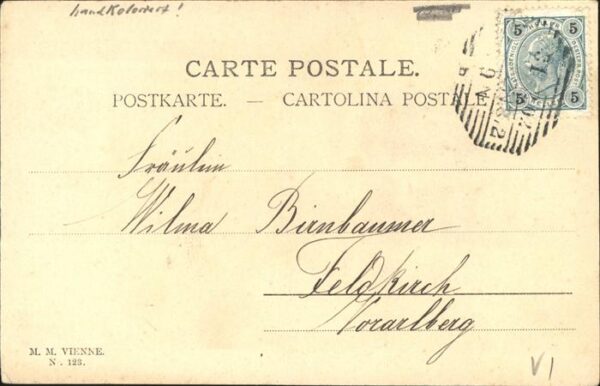 handkoloriert!
CARTE POSTALE.
POSTKARTE. — CARTOLINA POSTALE
5 5
5 5
Fräulein
Wilma Birnbaumer
Feldkirch
Vorarlberg
M. M. VIENNE.
N. 123.
VI